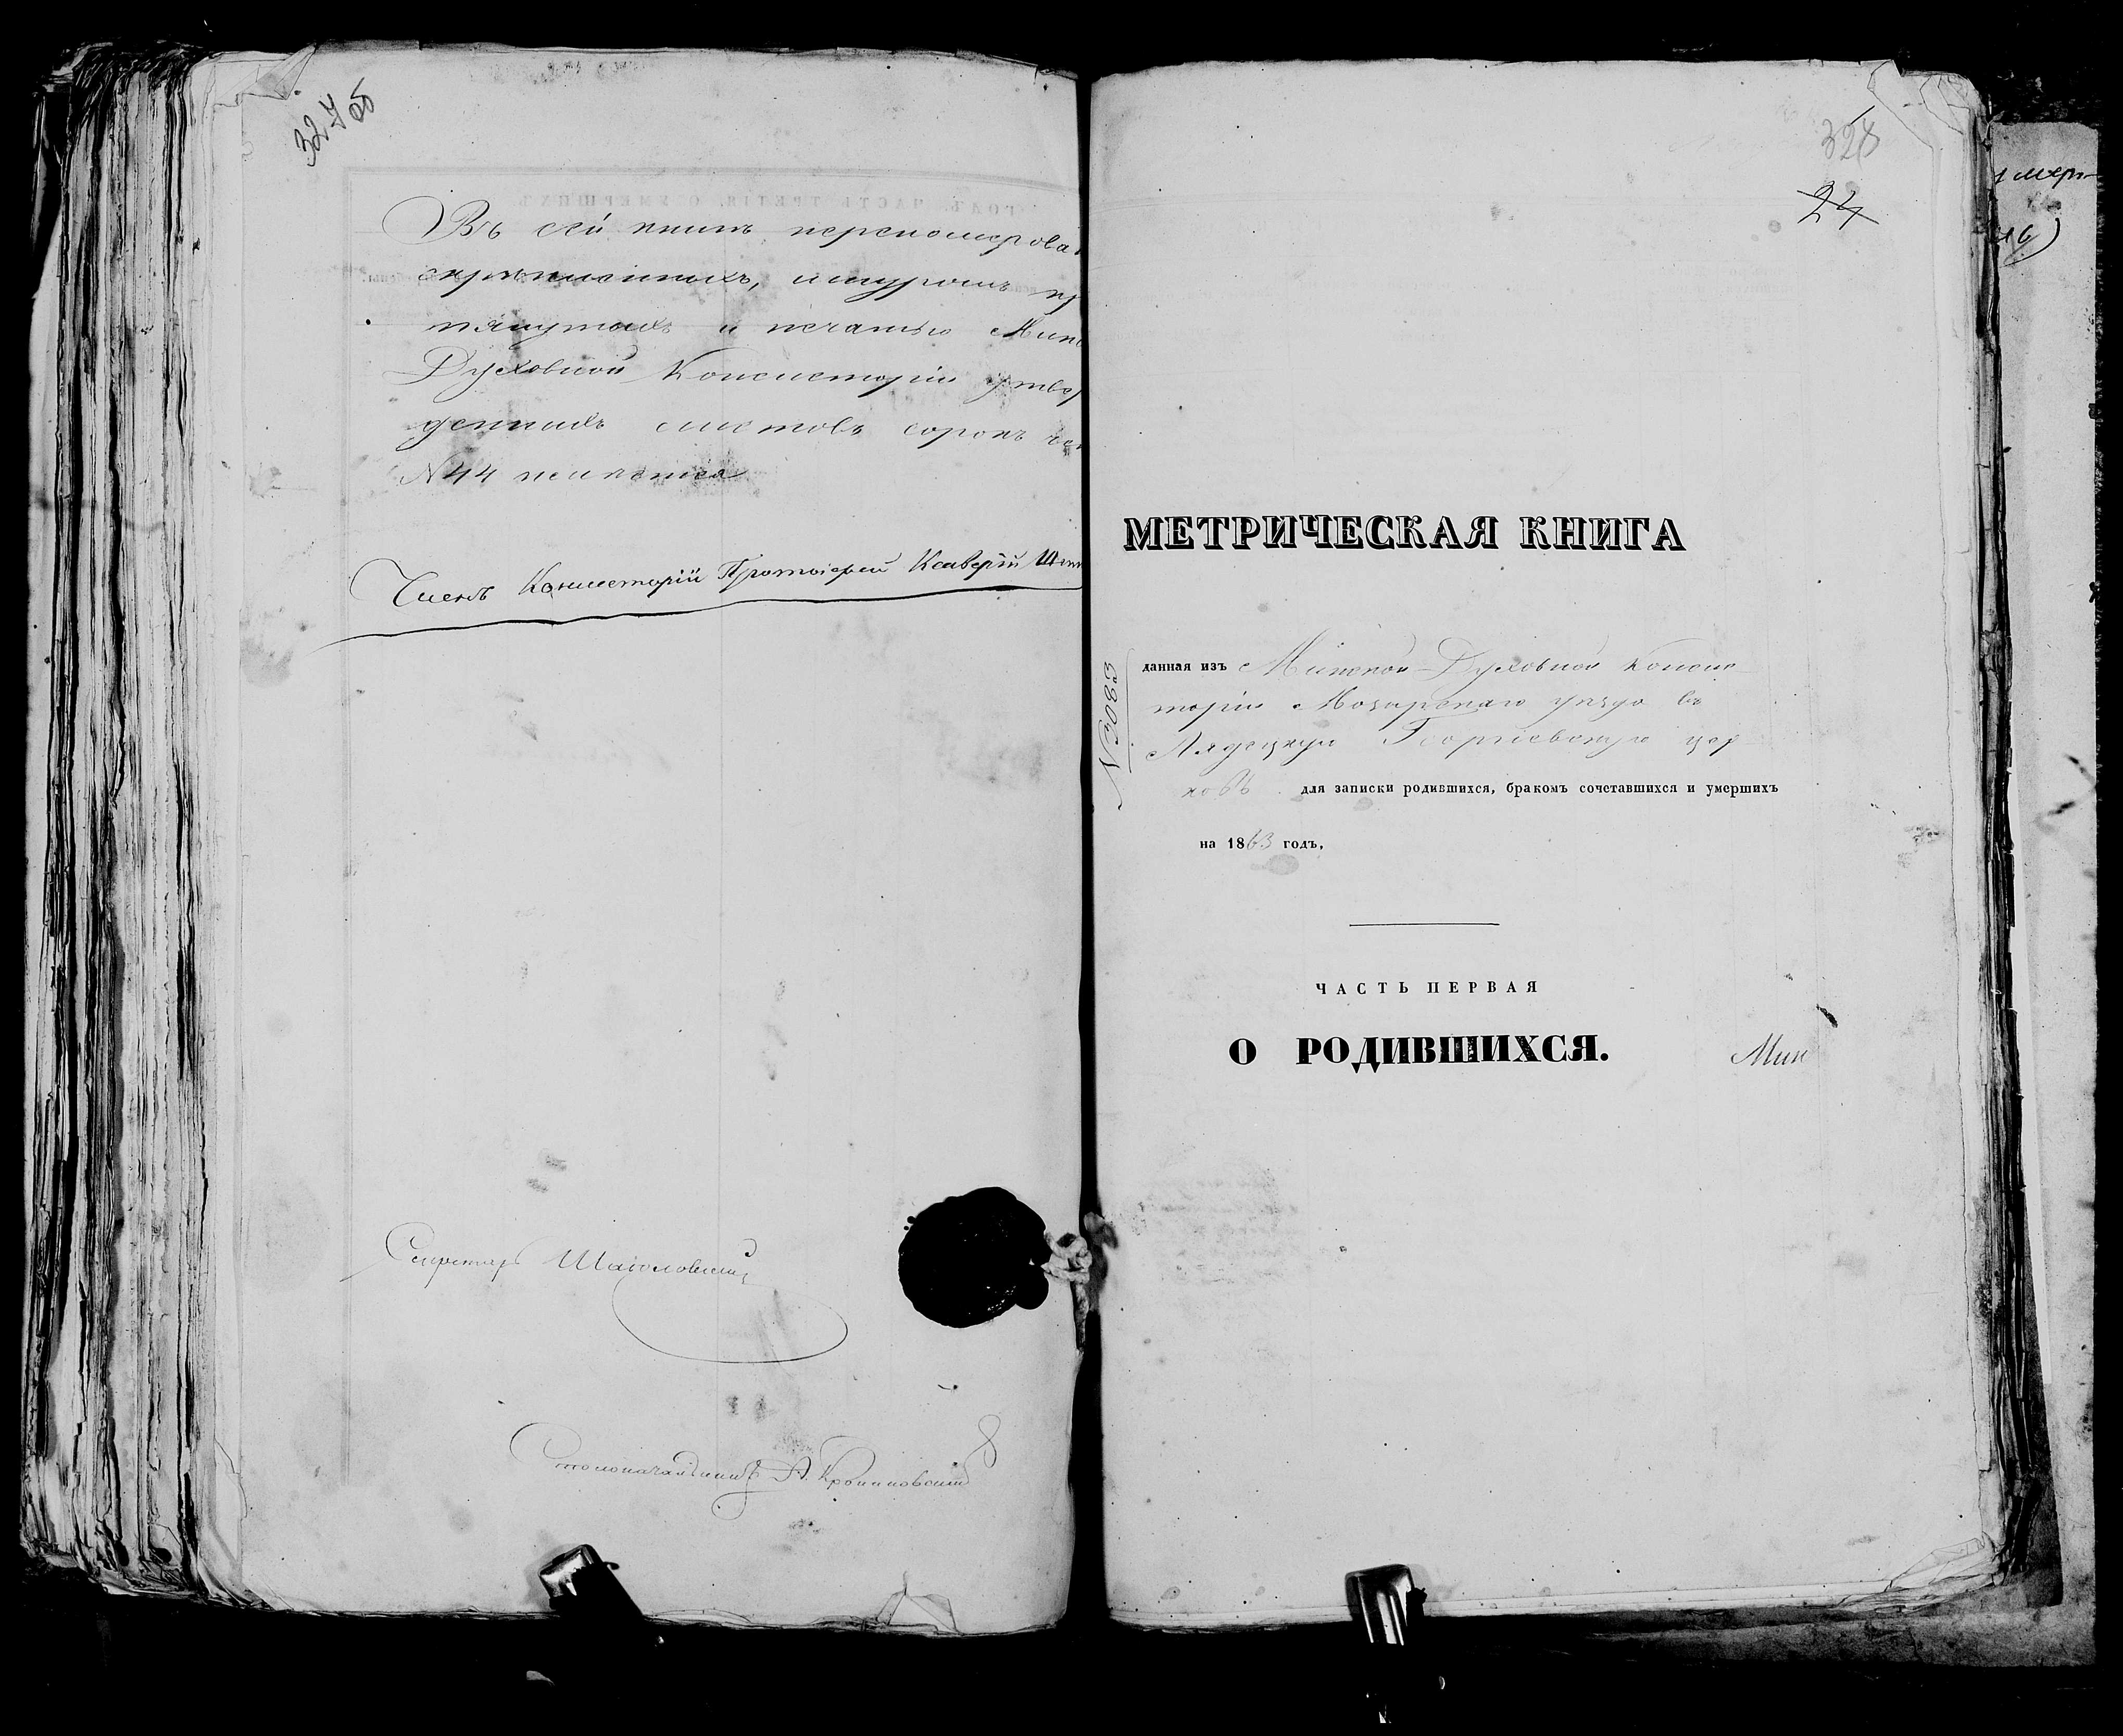 327 об
Въ сей книгѣ перенумерова
скрѣпленныхъ, шнуромъ пр
тянутыхъ и печатью Минс
Духовной Консисторіи утвер
жденныхъ листовъ сорокъ че
N 44
Членъ Консисторіи Протоіерей
Секретарь
Столоначальникъ А.
328
24
МЕТРИЧЕСКАЯ КНИГА
N 3083
данная изъ Минской Духовной Консис
торіи Мозырскаго уѣзда въ
Лядецкую Георгіевскую цер
ковь для записки родившихся, бракомъ сочетавшихся и умершихъ
на 1863 годъ,
ЧАСТЬ ПЕРВАЯ
О РОДИВШИХСЯ.
Мин